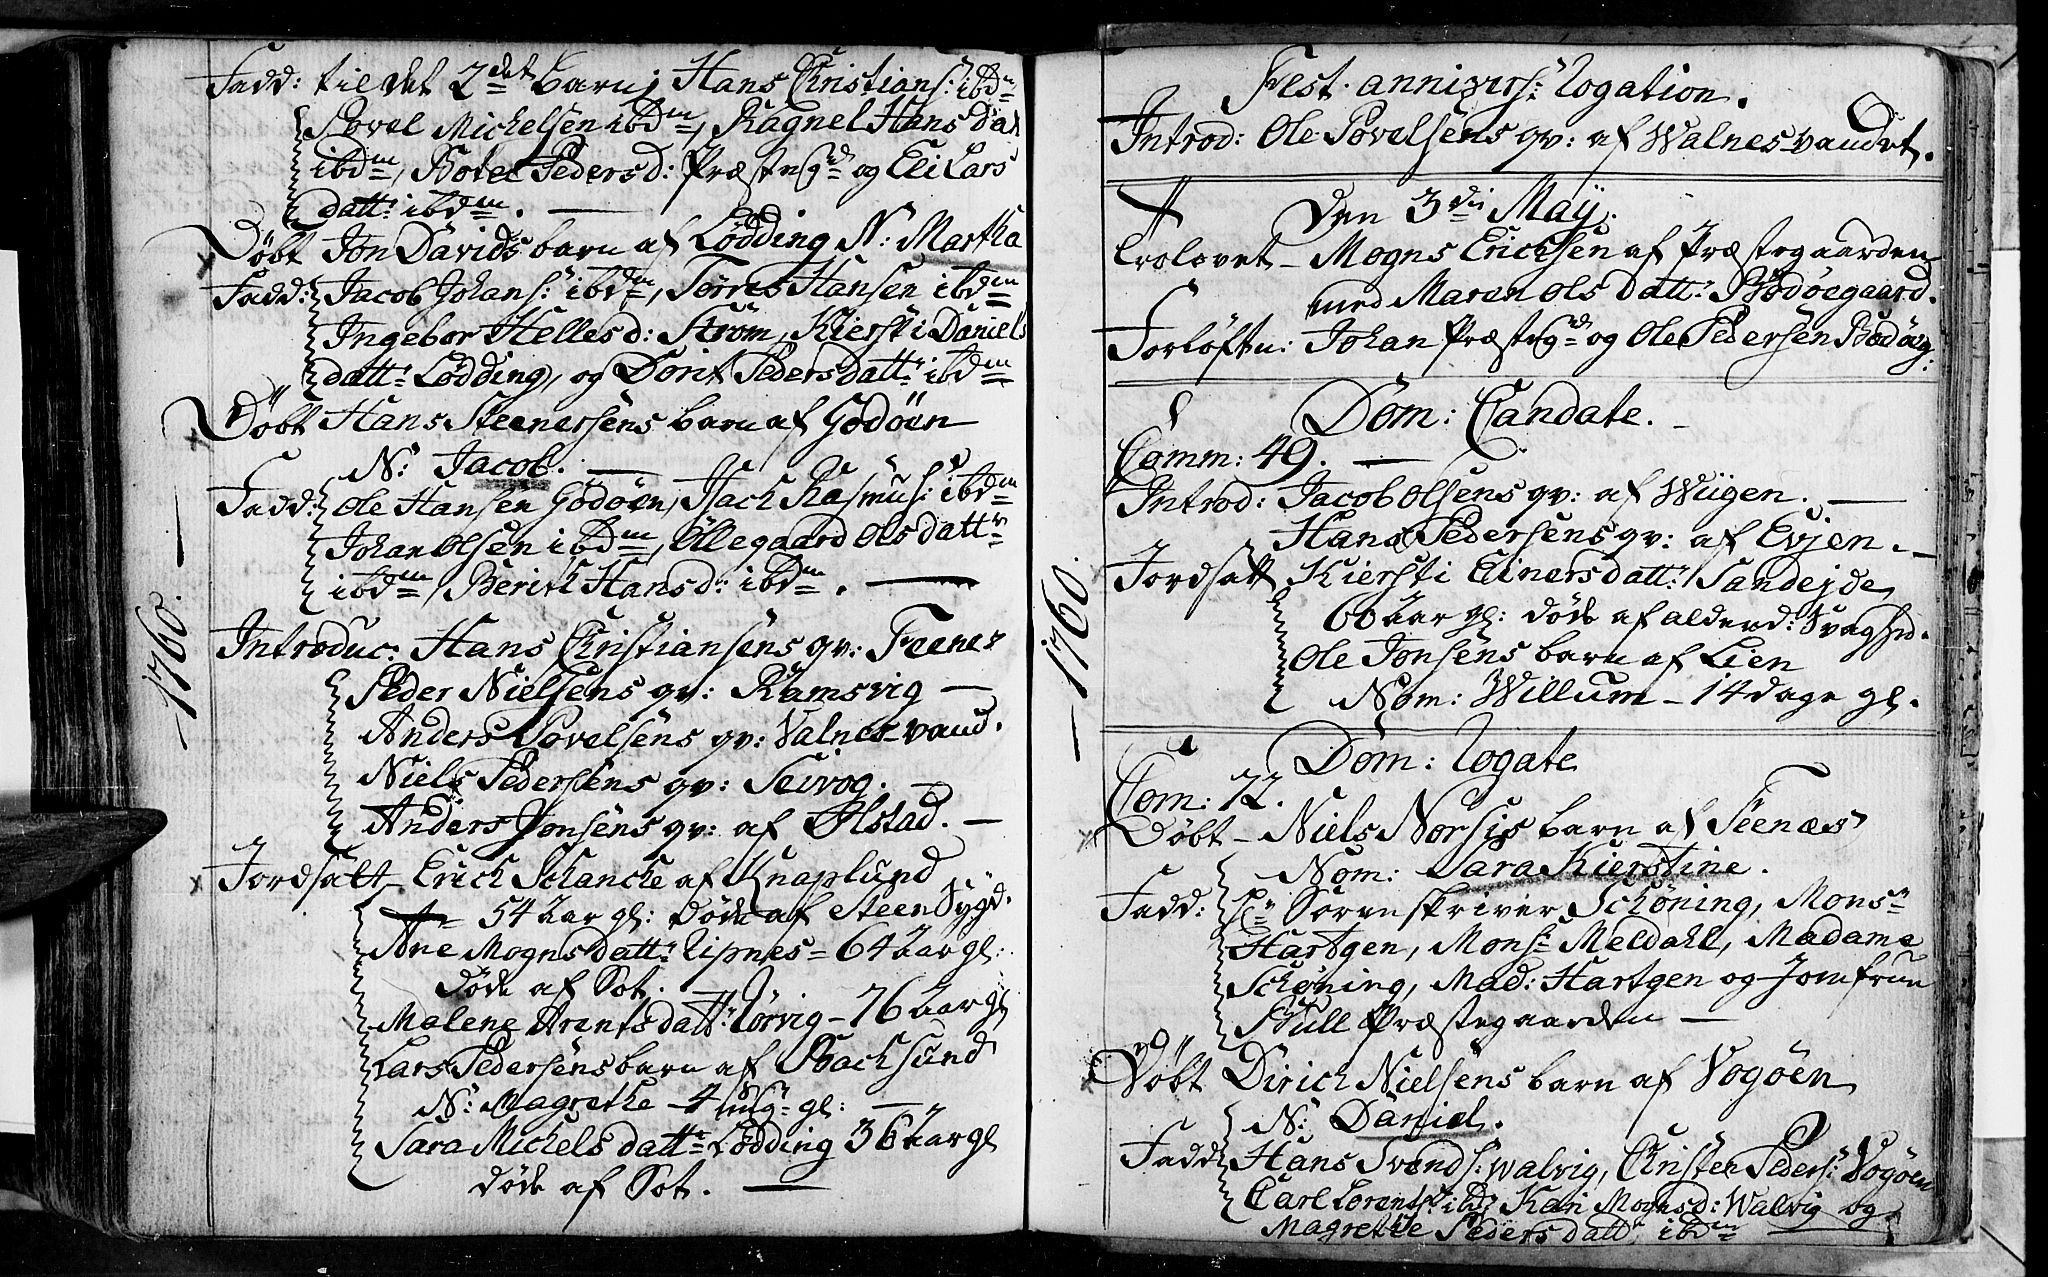 Fadd: til det 2det barn; Hans Christians: ibdm
Povel Michelsen ibdm, Ragnel Hans dat
ibdm, Botel Peders d: PræsteGd og Eli Lars
datt: ibdm. —
Döbt Jon Davids barn af Lödding N: Martha
Fadd: Jacob Johans: ibdm, Torres Hansen ibdm
Ingebor Helles d: Ström, Kiersti Daniels
datt: Lödding, og Dorit Peders datt: ibdm
Döbt Hans Steenersens barn af Godöen
N: Jacob. —
Fadd: Ole Hansen Godöen, Isach Rasmus: ibdm
Johan Olsen ibdm, Ollegaard Ols datt:
ibdm, Berith Hans d: ibdm. —
Introduc: Hans Christiansens qv: Feenes
Peder Nielsens qv: Ramsvig —
Anders Povelsens qv: Valnes-vand.
Niels Pedersens qv: Seivog. —
Anders Jonsens qv: af Olstad. —
Jordsatt Erich Schancke af Knaplund
54 Aar gl: döde af Steen Sygd.
Ane Mogns datt: Lipnes = 64 Aar gl:
döde af Sot. —
Malene Arents datt: Lörvig – 76 Aar gl
Lars Pedersens barn af Bachsund
N: Magrethe – 4 ug: gl: —
Sara Michels datt: Lödding 36 Aar gl
döde af Sot. —
– 1760. –
Fest. annivers: Rogation.
Introd: Ole Povelsens qv: af Walnes-vandet.
Den 3die Maij.
Trolovet – Mogns Erichsen af Præstegaarden
med Maren Ols datt: Bodöegaard.
Forlöftn: Johan PræsteGd og Ole Pedersen Bodöeg:
Dom: Cantate. –
Comm: 49. —
Introd: Jacob Olsens qv: af Wiigen. —
Hans Pedersens qv: af Evjen. –
Jordsatt Kiersti Einers datt: Sandejde
60 Aar gl: döde af alderd: Svaghed.
Ole Jonsens barn af Lien
Nom: Willum – 14 dage gl.
– 1760. –
Dom: Rogate
Com: 72.
Döbt – Niels Norsis barn af Feenæs
Nom: Sara Kierstine.
Fadd: Hr Sorenskriver Schöning, Mons:
Hartgen, Mons: Meldahl, Madame
Schöning, Mad: Hartgen og Jomfrue
Præstegaarden —
Döbt Dirich Nielsens barn af Vogöen
N: Daniel.
Fadd: Hans Svends: Walvig, Christen Peders: Vogöen
Carl Lorents: ibd, Kari Mogns d: Walvig og
Magrethe Peders datt: ibdm —